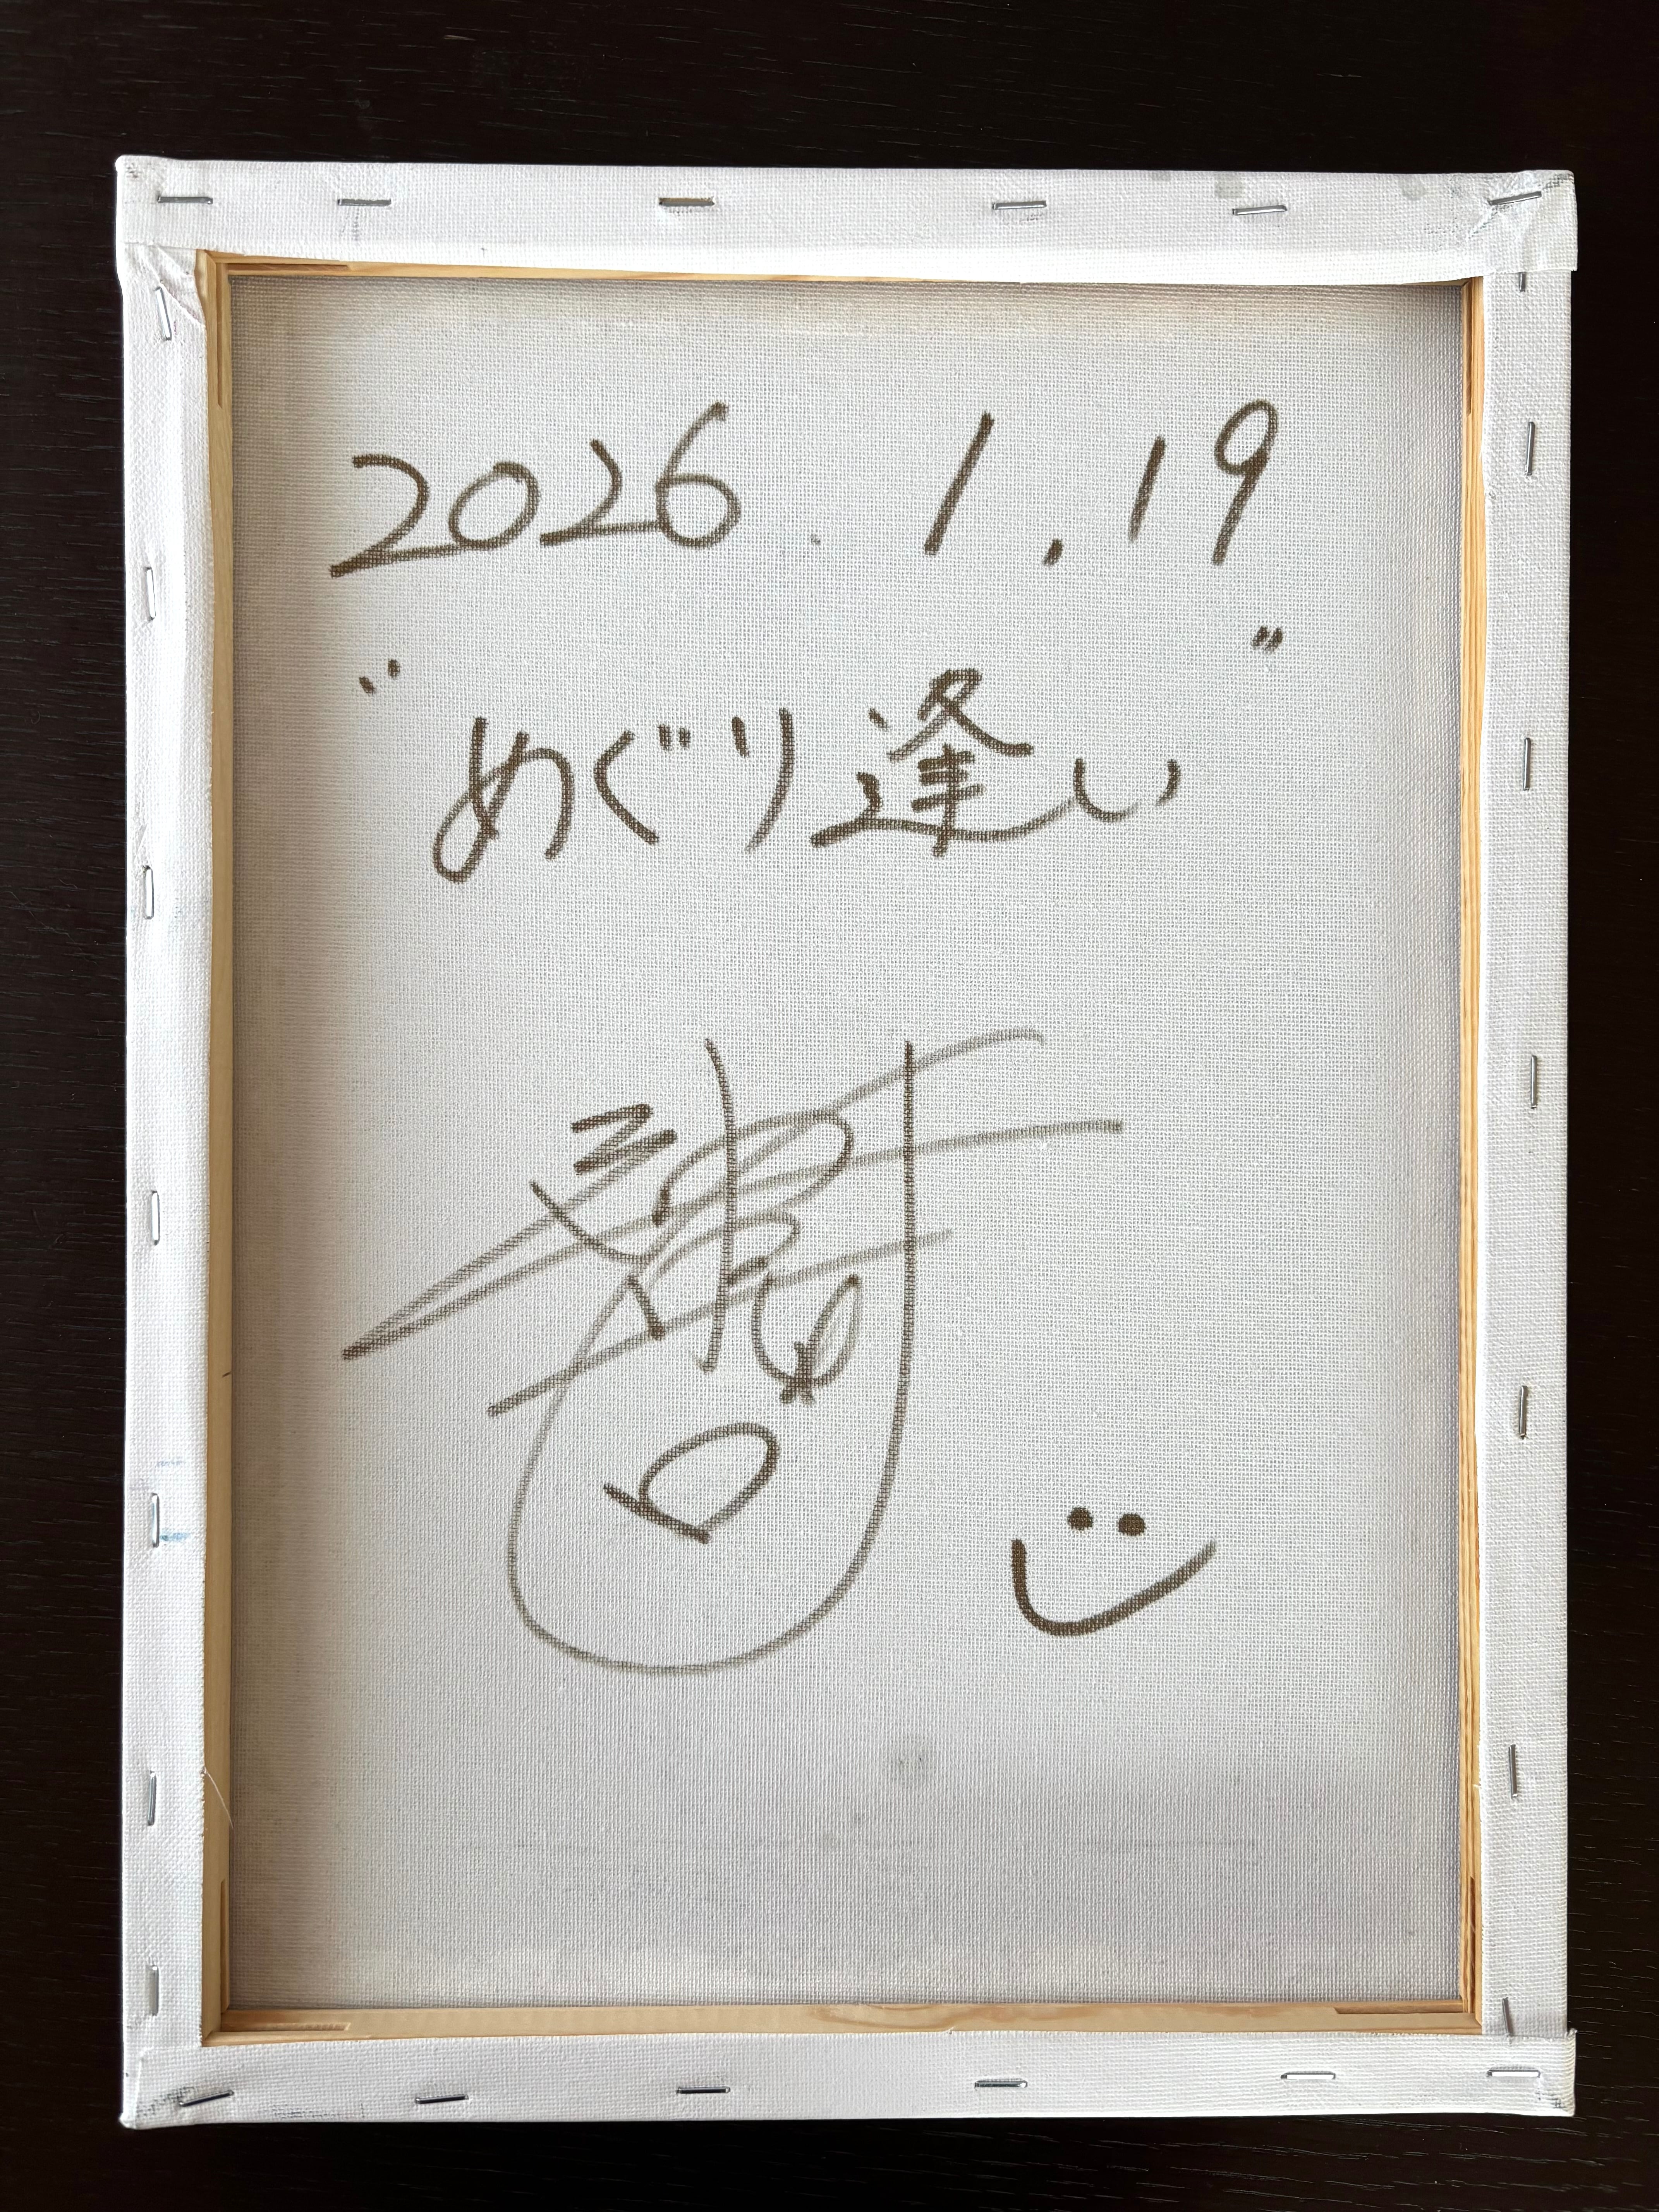 2026. 1.19
"めぐり逢い"